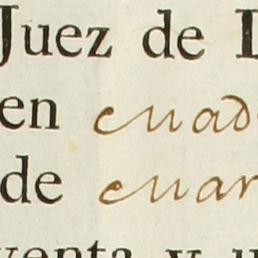 Juez de
en cuad
de cuar
venta y